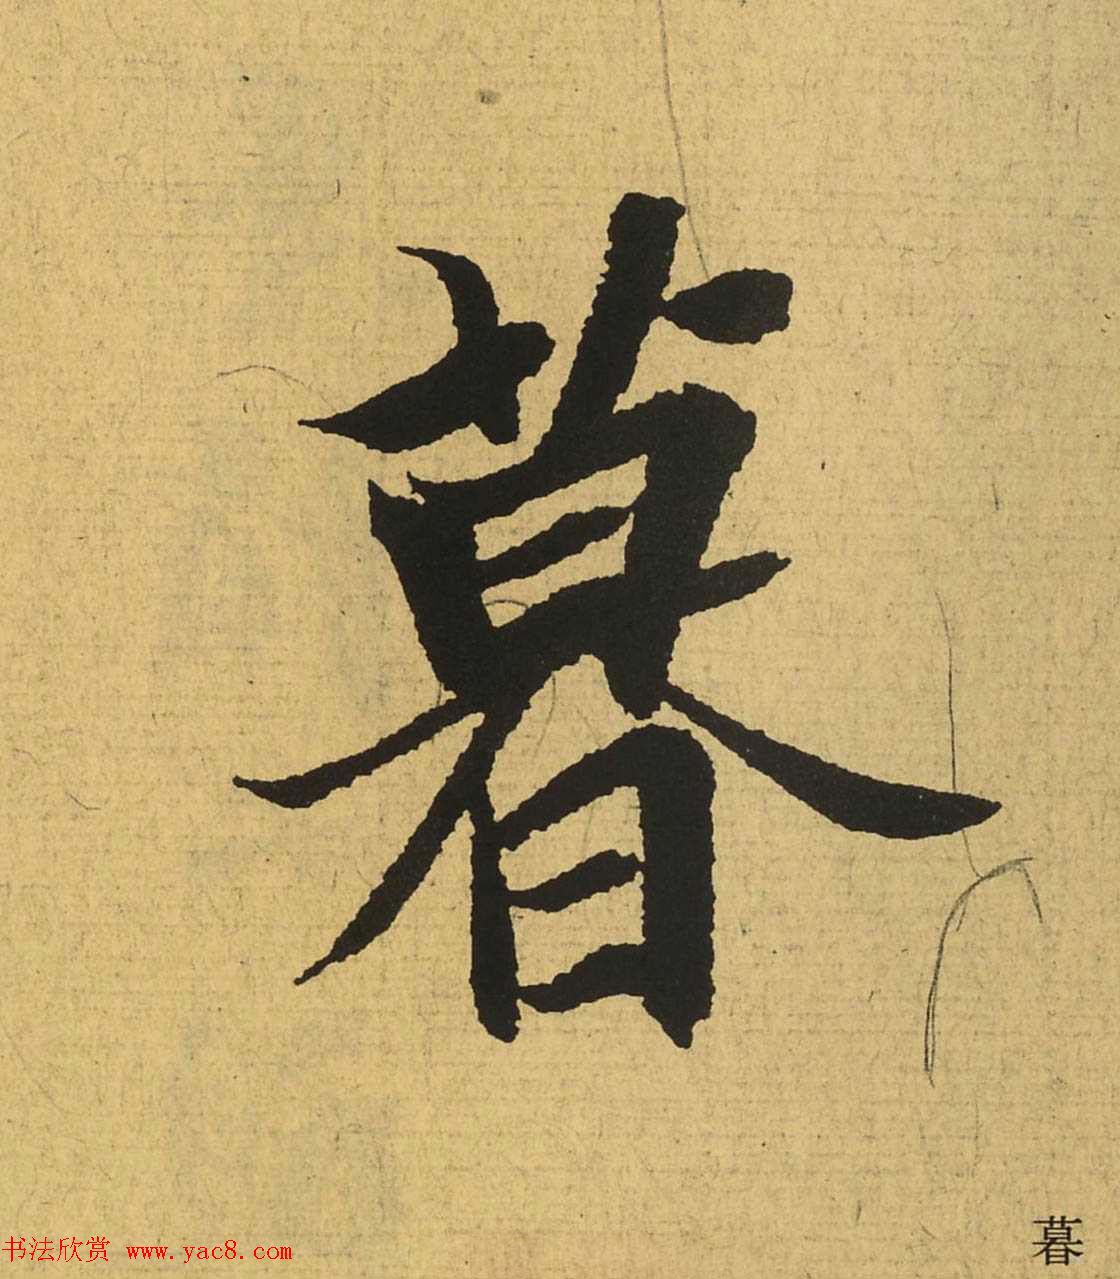 暮
书法欣赏 www.yac8.com
暮